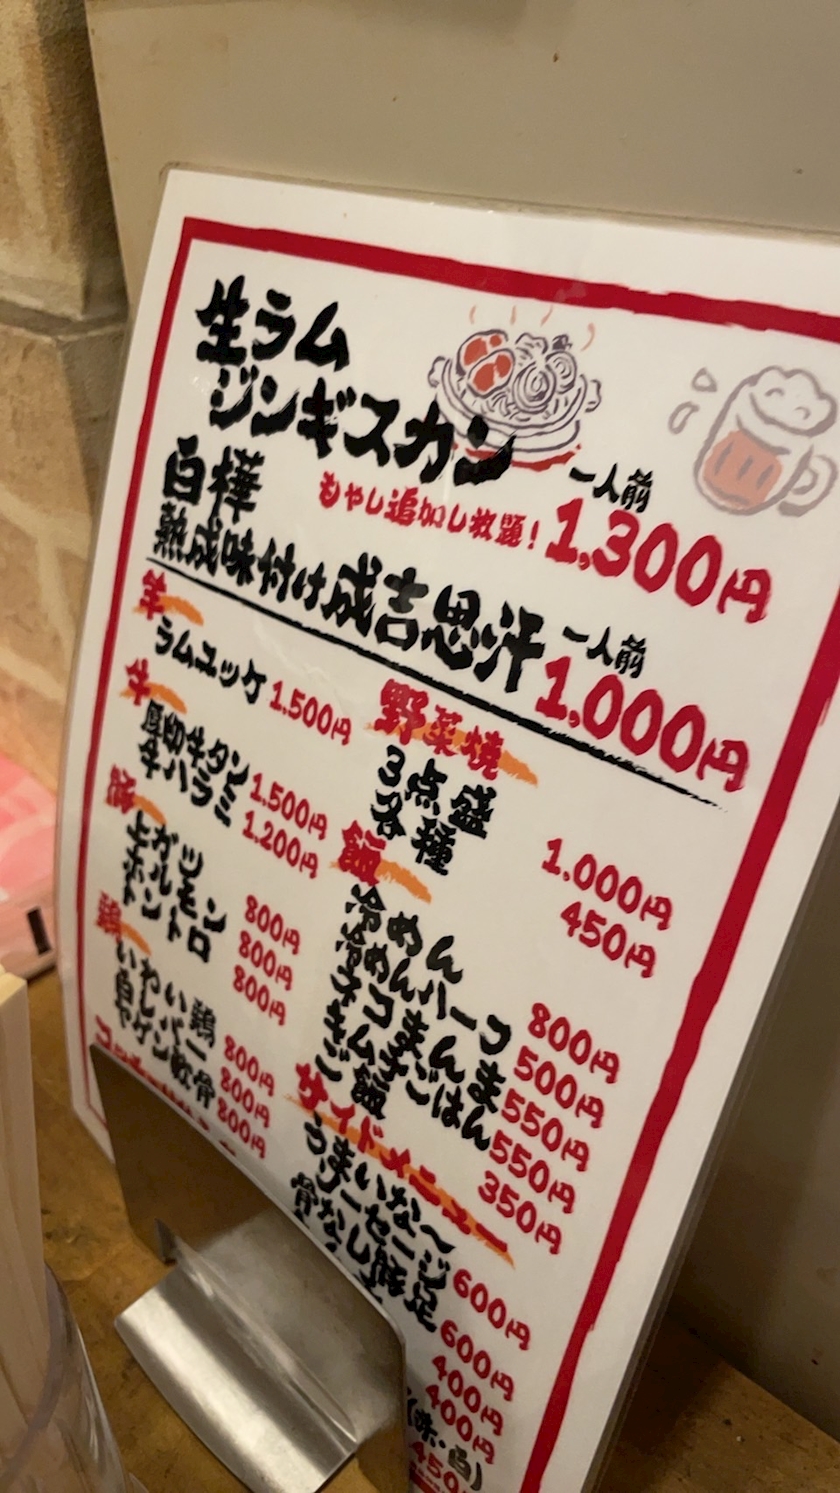 生ラム
ジンギスカン
一人前
もやし追加し放題! 1,300円
白樺
熟成味付け成吉思汗
一人前
1,000円
羊
ラムユッケ 1,500円
牛
厚切牛タン 1,500円
牛ハラミ 1,200円
豚
上ガツ 800円
ホルモン 800円
トントロ 800円
鶏
いわい鶏 800円
白レバー 800円
ヤゲン軟骨 800円
野菜焼
3点盛 1,000円
各種 450円
飯
冷めん 800円
冷めんハーフ 500円
550円
550円
ご飯 350円
サイドメニュー
うまいな〜
ソーセージ 600円
骨なし豚足 600円
400円
400円
450円